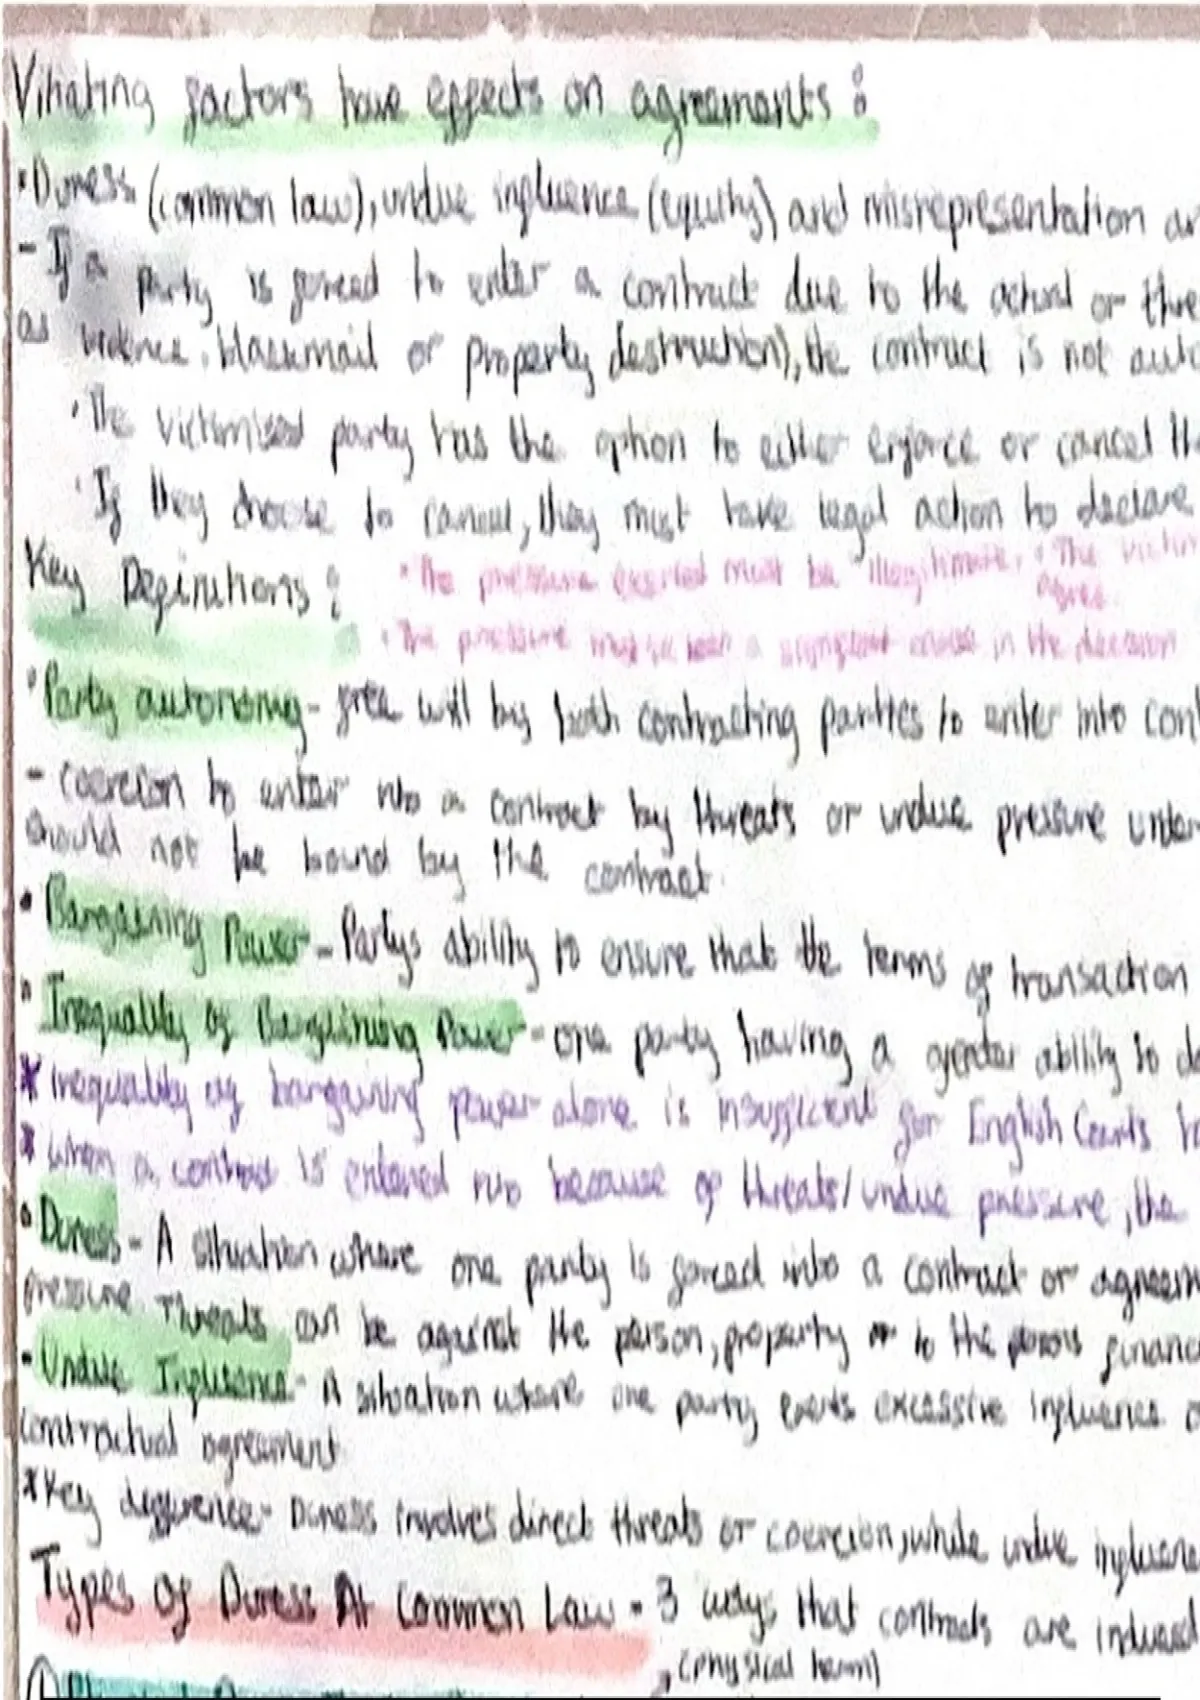 Vitiating factors have effects on agreements :
• Duress (common law), undue influence (equity) and misrepresentation ar
- If a party is forced to enter a contract due to the actual or thre
as violence, blackmail or property destruction), the contract is not auto
• The victimised party has the option to either enforce or cancel the
• If they choose to cancel, they must take legal action to declare
Key Definitions :
• The pressure exerted must be illegitimate. • The victim
agree
• The pressure must be been a significant cause in the decision
• Party autonomy - free will by both contracting parties to enter into cont
- coercion to enter into a contract by threats or undue pressure under
should not be bound by the contract.
• Bargaining Power - Partys ability to ensure that the terms of transaction
• Inequality of Bargaining Power - one party having a greater ability to de
* inequality of bargaining power alone is insufficient for English Courts to
* when a contract is entered into because of threats/undue pressure, the
• Duress - A situation where one party is forced into a contract or agreem
pressure. Threats can be against the person, property or to the financ
• Undue Influence - A situation where one party exerts excessive influence o
contractual agreement
* Key difference - Duress involves direct threats or coercion, while undue influenc
Types of Duress At Common Law - 3 ways that contracts are induced
(physical harm)